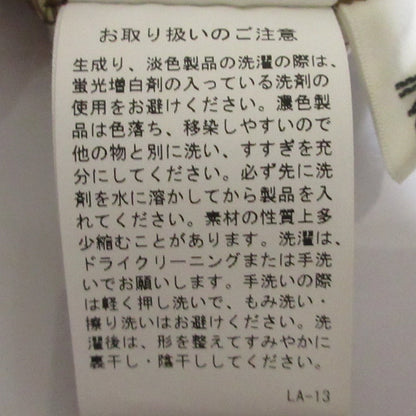 お取り扱いのご注意
生成り、淡色製品の洗濯の際は、
蛍光増白剤の入っている洗剤の
使用をお避けください。濃色製
品は色落ち、移染しやすいので
他の物と別に洗い、すすぎを充
分にしてください。必ず先に洗
剤を水に溶かしてから製品を入
れてください。素材の性質上多
少縮むことがあります。洗濯は、
ドライクリーニングまたは手洗
いでお願いします。手洗いの際
は軽く押し洗いで、もみ洗い・
擦り洗いはお避けください。洗
濯後は、形を整えてすみやかに
裏干し・陰干ししてください。
LA-13